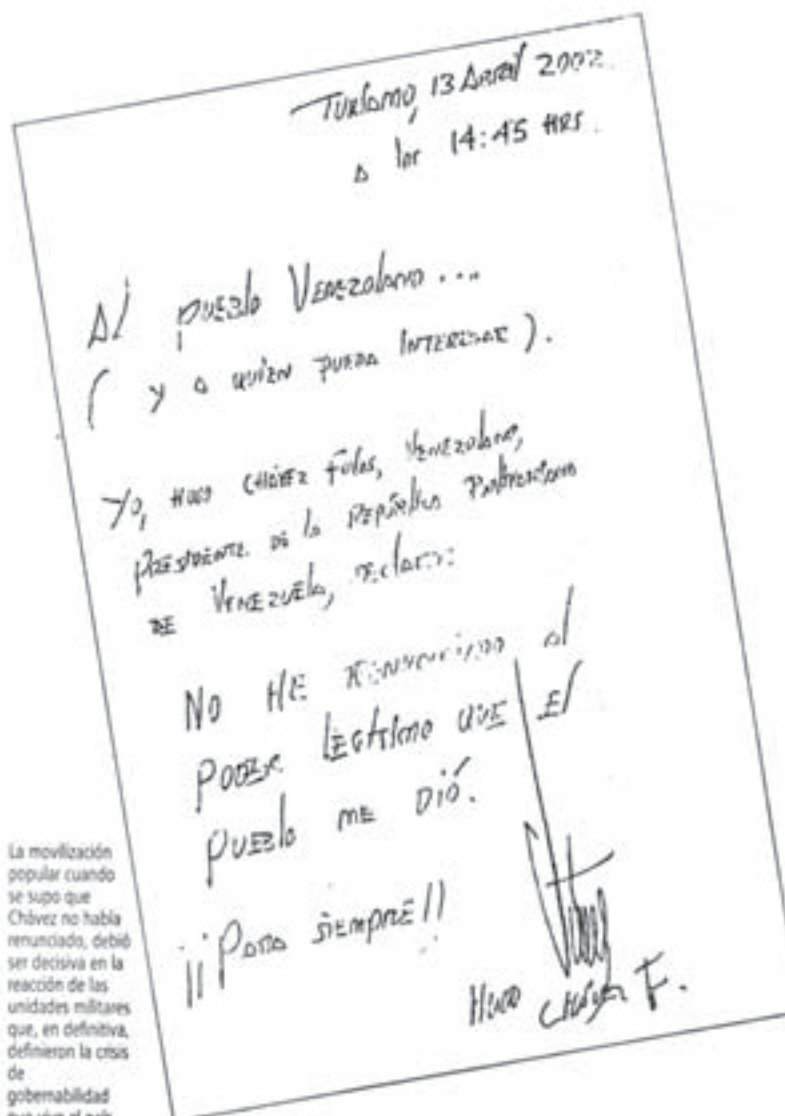 Turiamo, 13 Abril 2002.
a las 14:45 HRS.
Al pueblo Venezolano...
(y a quien pueda interesar).
Yo, Hugo Chávez Frías, Venezolano,
Presidente de la República Bolivariana
de Venezuela, declaro:
No he renunciado al
poder legítimo que el
pueblo me dió.
¡¡Para siempre!!
Hugo Chávez F.
La movilización
popular cuando
se supo que
Chávez no había
renunciado, debió
ser decisiva en la
reacción de las
unidades militares
que, en definitiva,
definieron la crisis
de
gobernabilidad